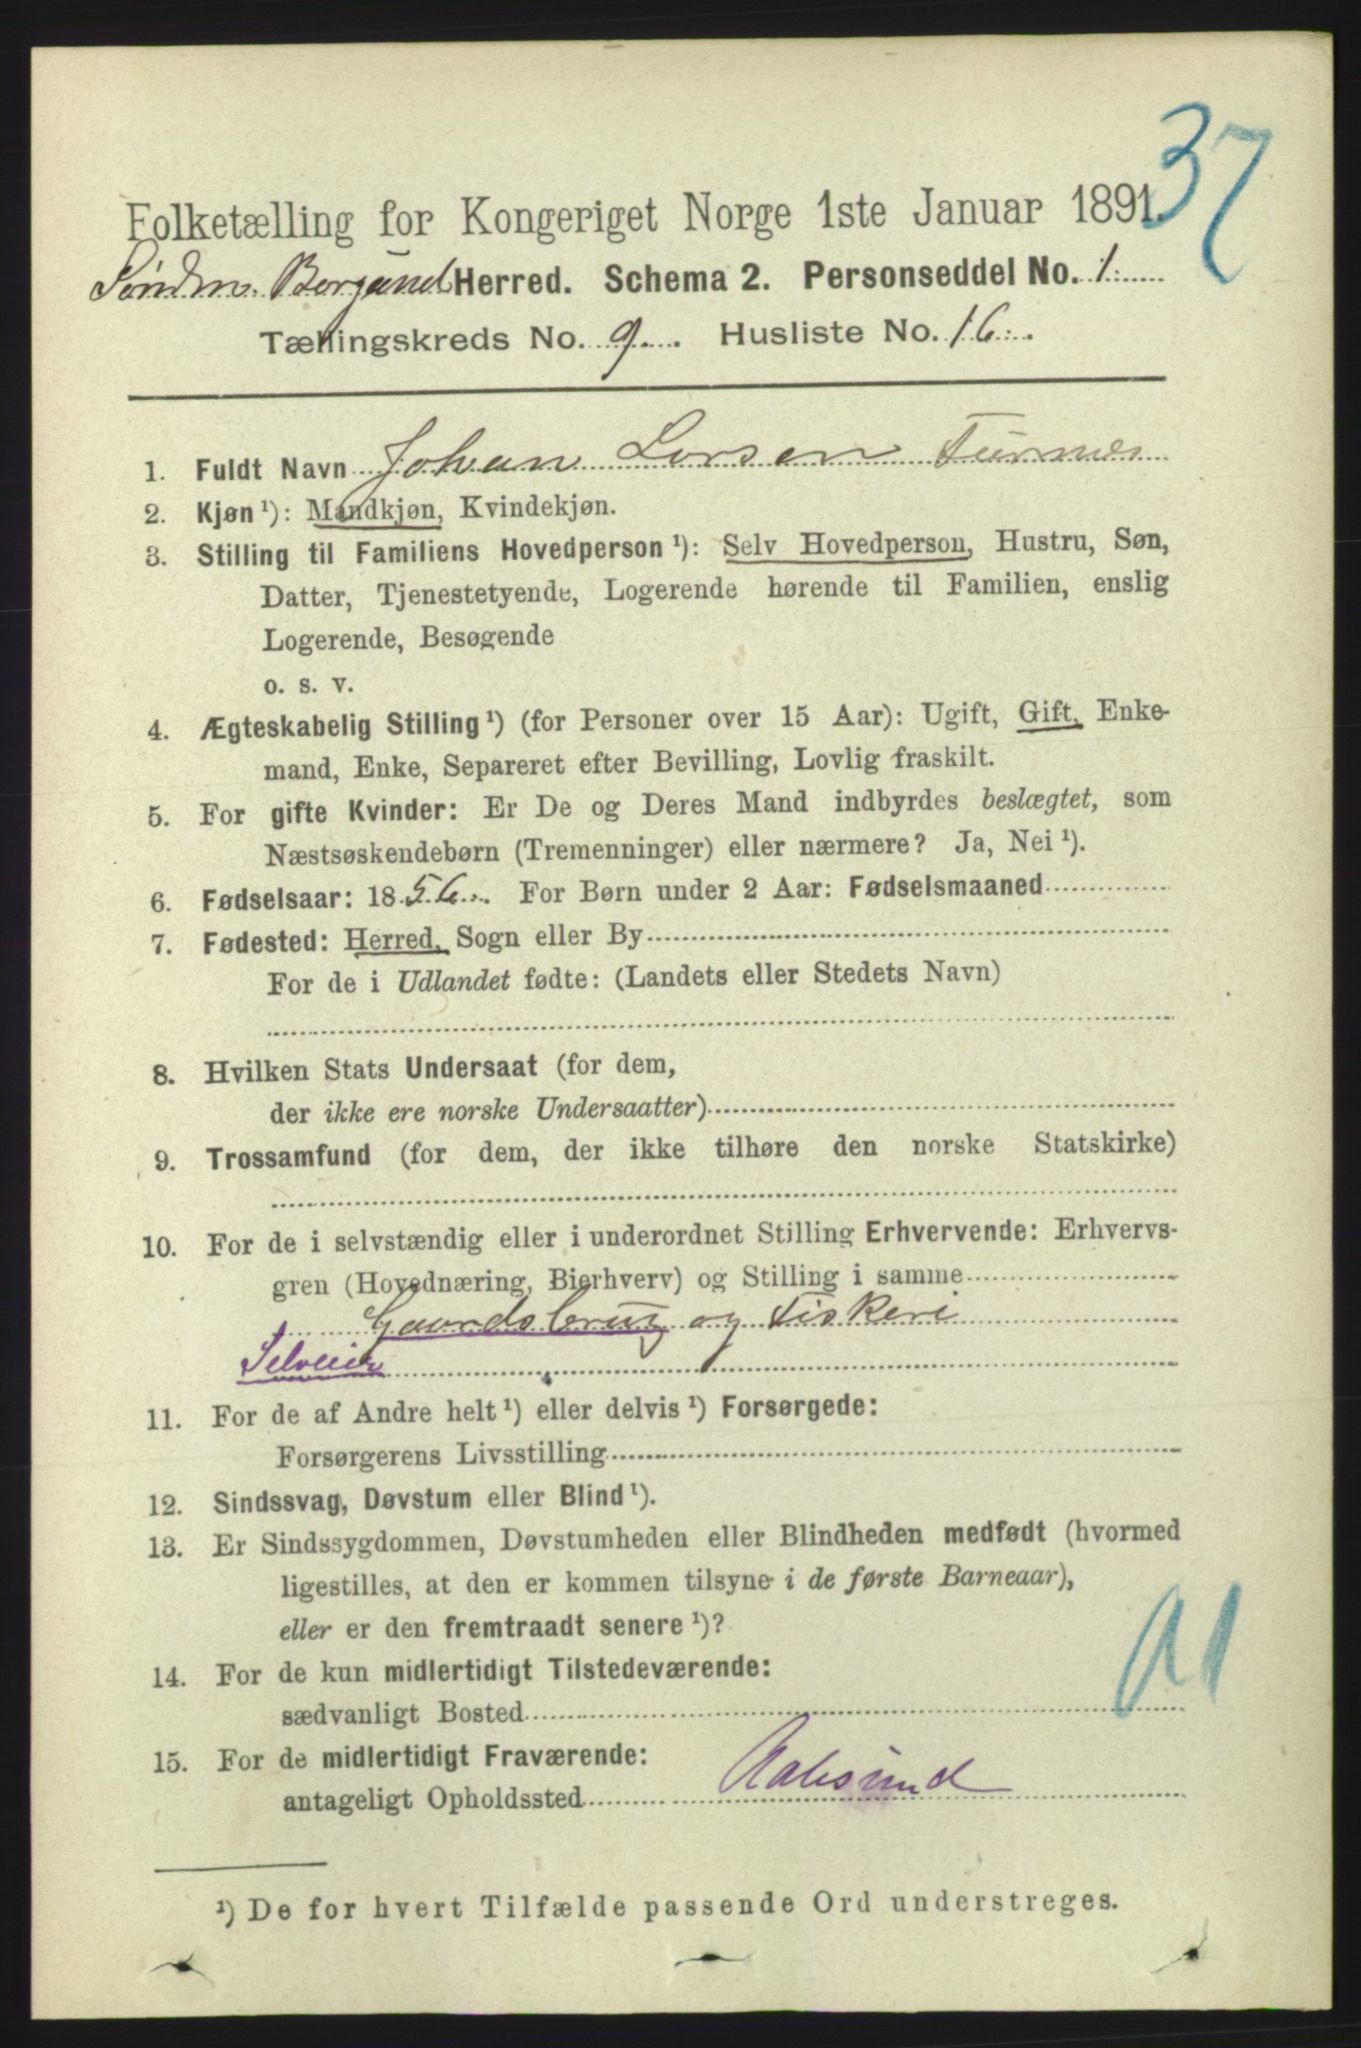 37
Folketælling for Kongeriget Norge 1ste Januar 1891.
Søndm. Borgund Herred. Schema 2. Personseddel No. 1.
Tællingskreds No. 9. Husliste No. 16.
1. Fuldt Navn Johan Larsen Turnnes
2. Kjøn ¹): Mandkjøn, Kvindekjøn.
3. Stilling til Familiens Hovedperson ¹): Selv Hovedperson, Hustru, Søn,
Datter, Tjenestetyende, Logerende hørende til Familien, enslig
Logerende, Besøgende
o. s. v.
4. Ægteskabelig Stilling ¹) (for Personer over 15 Aar): Ugift, Gift, Enke-
mand, Enke, Separeret efter Bevilling, Lovlig fraskilt.
5. For gifte Kvinder: Er De og Deres Mand indbyrdes beslægtet, som
Næstsøskendebørn (Tremenninger) eller nærmere? Ja, Nei ¹).
6. Fødselsaar: 1856. For Børn under 2 Aar: Fødselsmaaned
7. Fødested: Herred, Sogn eller By
For de i Udlandet fødte: (Landets eller Stedets Navn)
8. Hvilken Stats Undersaat (for dem,
der ikke ere norske Undersaatter)
9. Trossamfund (for dem, der ikke tilhøre den norske Statskirke)
10. For de i selvstændig eller i underordnet Stilling Erhvervende: Erhvervs-
gren (Hovednæring, Bierhverv) og Stilling i samme
Gaardsbrug og Fiskeri
Selveier
11. For de af Andre helt ¹) eller delvis ¹) Forsørgede:
Forsørgerens Livsstilling
12. Sindssvag, Døvstum eller Blind ¹).
13. Er Sindssygdommen, Døvstumheden eller Blindheden medfødt (hvormed
ligestilles, at den er kommen tilsyne i de første Barneaar),
eller er den fremtraadt senere ¹)?
14. For de kun midlertidigt Tilstedeværende:
sædvanligt Bosted
15. For de midlertidigt Fraværende:
antageligt Opholdssted Aalesund
¹) De for hvert Tilfælde passende Ord understreges.